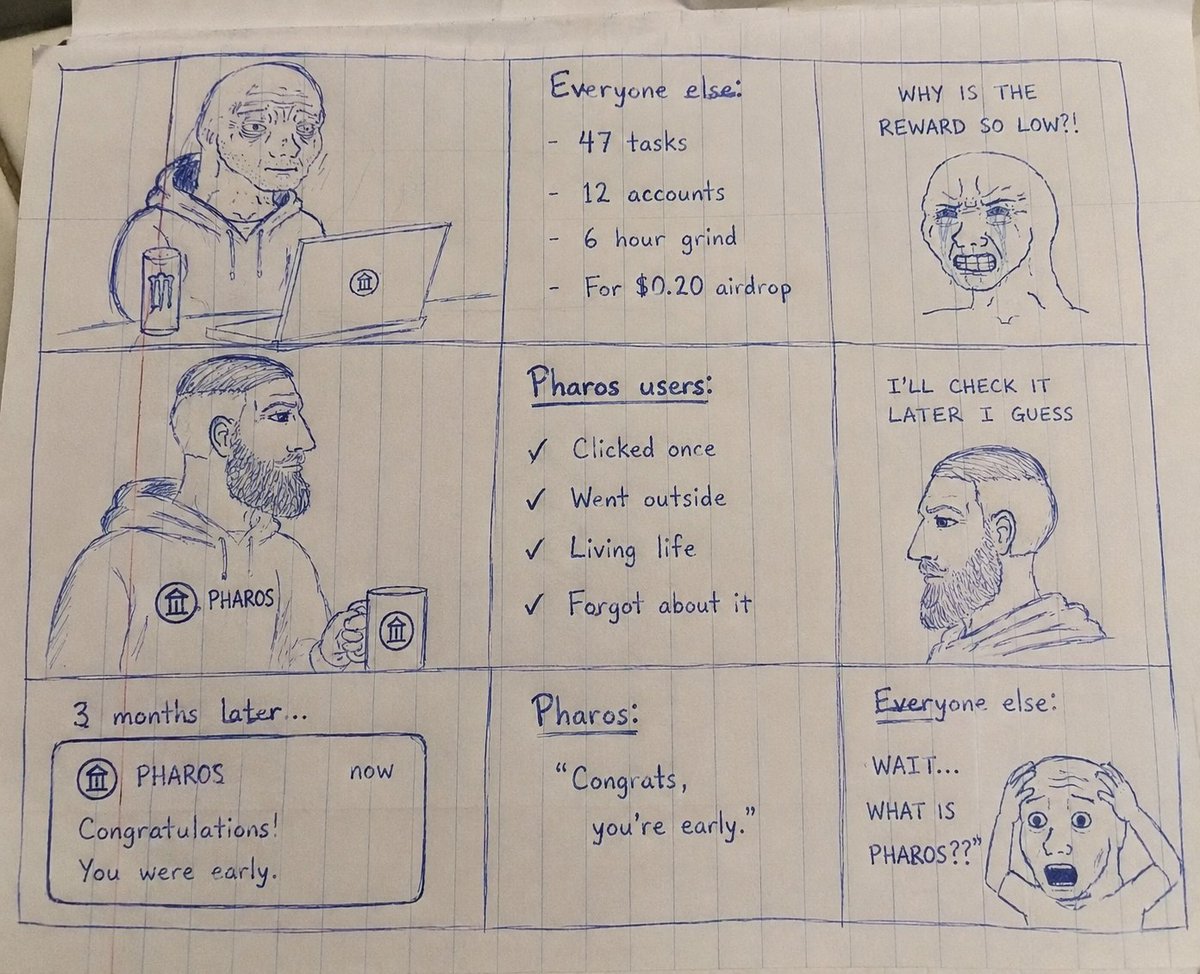 Everyone else:
- 47 tasks
- 12 accounts
- 6 hour grind
- For $0.20 airdrop
WHY IS THE
REWARD SO LOW?!
PHAROS
Pharos users:
✓ Clicked once
✓ Went outside
✓ Living life
✓ Forgot about it
I'LL CHECK IT
LATER I GUESS
3 months later...
PHAROS now
Congratulations!
You were early.
Pharos:
"Congrats,
you're early."
Everyone else:
WAIT...
WHAT IS
PHAROS??"